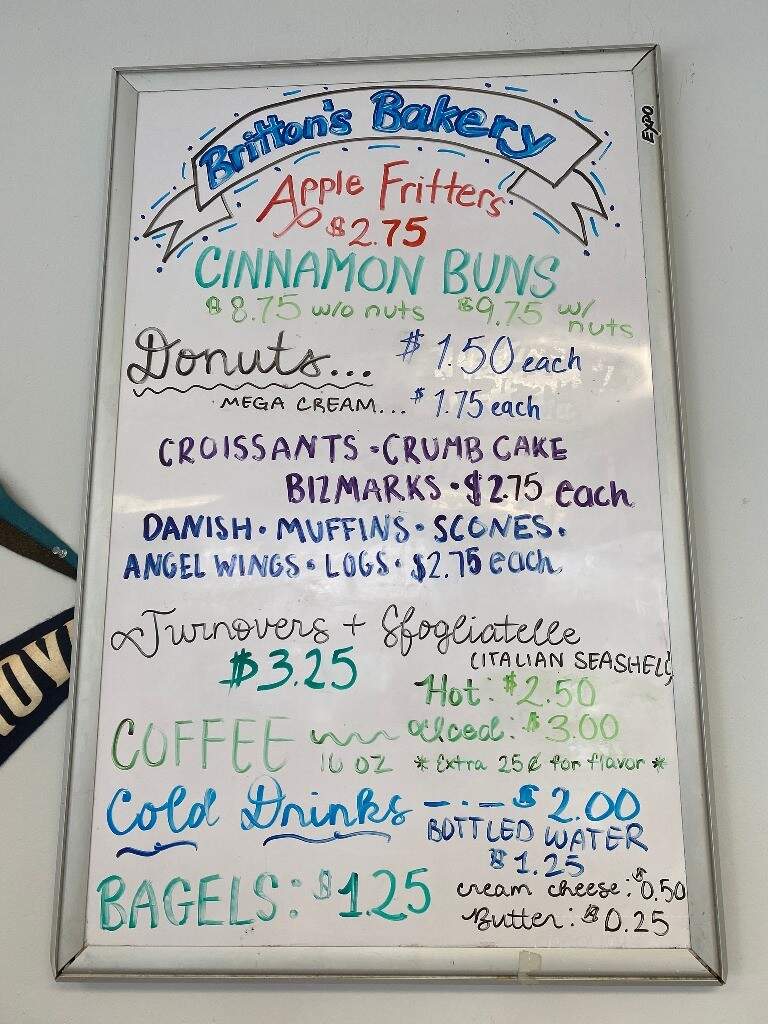 Britton's Bakery
EXPO
Apple Fritters
$2.75
CINNAMON BUNS
$8.75 w/o nuts $9.75 w/ nuts
Donuts... $1.50 each
MEGA CREAM... $1.75 each
CROISSANTS · CRUMB CAKE
BIZMARKS · $2.75 each
DANISH · MUFFINS · SCONES ·
ANGEL WINGS · LOGS · $2.75 each
Turnovers + Sfogliatelle
(ITALIAN SEASHELL)
$3.25
Hot: $2.50
COFFEE Iced: $3.00
16 OZ * Extra 25¢ for flavor *
Cold Drinks — · — $2.00
BOTTLED WATER
$1.25
BAGELS: $1.25 cream cheese: $0.50
Butter: $0.25